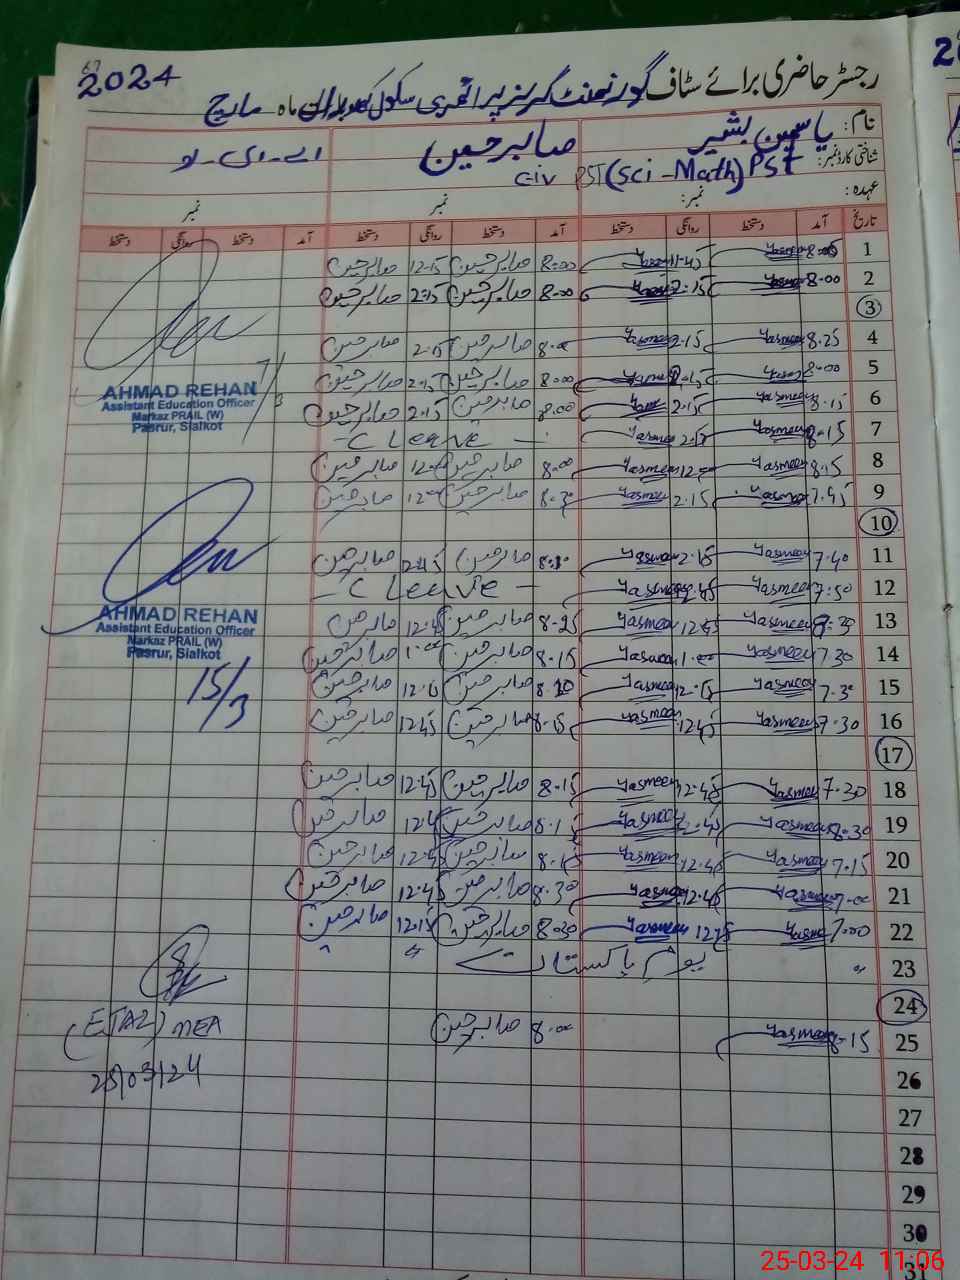 2024
رجسٹر حاضری برائے سٹاف گورنمنٹ گرلز پرائمری سکول ماہ مارچ
نام: یاسمین بشیر صابر حسین اے-ای-او
شناختی کارڈ نمبر:
عہدہ: PST (Sci-Math) PST Civ
نمبر: نمبر نمبر
تاریخ آمد دستخط روانگی دستخط آمد دستخط روانگی دستخط آمد دستخط روانگی دستخط
1 8-00 Yasmeen 11-45 8-00 صابر حسین 12-15 صابر حسین
2 8-00 Yasmeen 2-15 8-00 صابر حسین 2-15 صابر حسین
3
4 8-25 Yasmeen 2-15 Yasmeen صابر حسین 2-15 صابر حسین
5 8-00 8-00 صابر حسین 2-15 صابر حسین
6 8-15 Yasmeen 2-15 8-00 صابر حسین 2-15 صابر حسین
7 8-15 Yasmeen 2-15 Yasmeen - C Leave -
8 8-15 Yasmeen Yasmeen 8-00 صابر حسین صابر حسین
9 7-45 Yasmeen 2-15 Yasmeen 8-30 صابر حسین صابر حسین
10
11 7-40 Yasmeen 2-15 Yasmeen صابر حسین صابر حسین
12 7-50 Yasmeen Yasmeen - C Leave -
13 Yasmeen 12-45 Yasmeen 8-25 صابر حسین 12-45 صابر حسین
14 7-30 Yasmeen 1-00 Yasmeen 8-15 صابر حسین 1-00 صابر حسین
15 7-30 Yasmeen 12-15 Yasmeen صابر حسین 12-15 صابر حسین
16 7-30 Yasmeen 12-45 Yasmeen 8-15 صابر حسین 12-45 صابر حسین
17
18 7-30 Yasmeen 12-45 Yasmeen 8-15 صابر حسین 12-45 صابر حسین
19 Yasmeen 12-45 Yasmeen 8-15 صابر حسین صابر حسین
20 7-15 Yasmeen 12-45 Yasmeen 8-15 صابر حسین 12-45 صابر حسین
21 7-00 Yasmeen 12-45 Yasmeen 8-30 صابر حسین 12-45 صابر حسین
22 7-00 Yasmeen Yasmeen 8-30 صابر حسین 12-15 صابر حسین
23 یوم پاکستان
24
25 8-15 Yasmeen 8-00 صابر حسین
26
27
28
29
30
31
AHMAD REHAN
Assistant Education Officer
Markaz PRAIL (W)
Pasrur, Sialkot
7/3
AHMAD REHAN
Assistant Education Officer
Markaz PRAIL (W)
Pasrur, Sialkot
15/3
(EJAZ) MEA
25/03/24
25-03-24 11:06